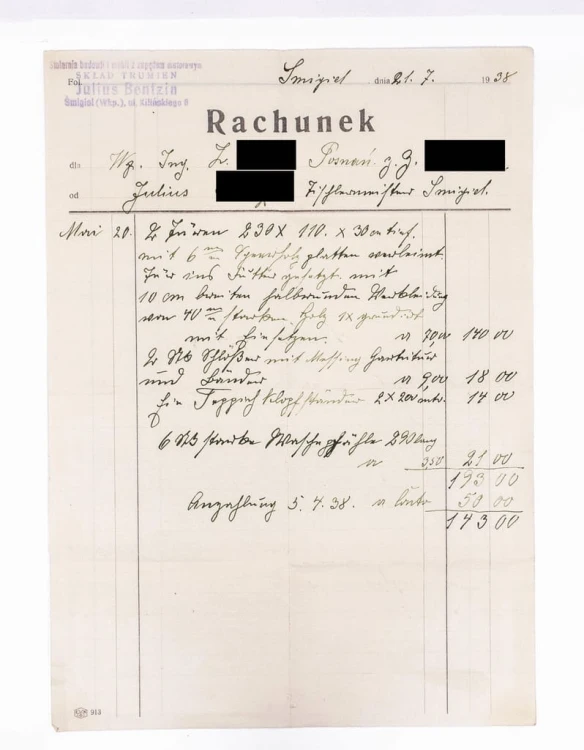 Stolarnia budowli i mebli z napędem motorowym
SKŁAD TRUMIEN
Fol.
Julius Bentzin
Śmigiel (Wkp.), ul. Kilińskiego 8
Śmigiel dnia 21. 7. 1938
Rachunek
dla Wp. Ing. Z. Poznań.
od Julius Tischlermeister Śmigiel.
Mai 20. 2 Türen 230 X 110. X 30 cm tief.
mit 6 m/m Sperrholzplatten verleimt.
Tür ins Futter gesetzt mit
10 cm breiten halbrunden Verkleidung
von 40 m/m starken Holz 1X grundirt
mit Einsetzen. a 70 00 140 00
2 Stk Schlößer mit Messing Garnitur
und Bänder a 9 00 18 00
Ein Teppich Klopfständer 2 X 200 14 00
6 Stk starke Waschepfähle 290 lang
a 3 50 21 00
193 00
Anzahlung 5. 4. 38. a Conto 50 00
143 00
913